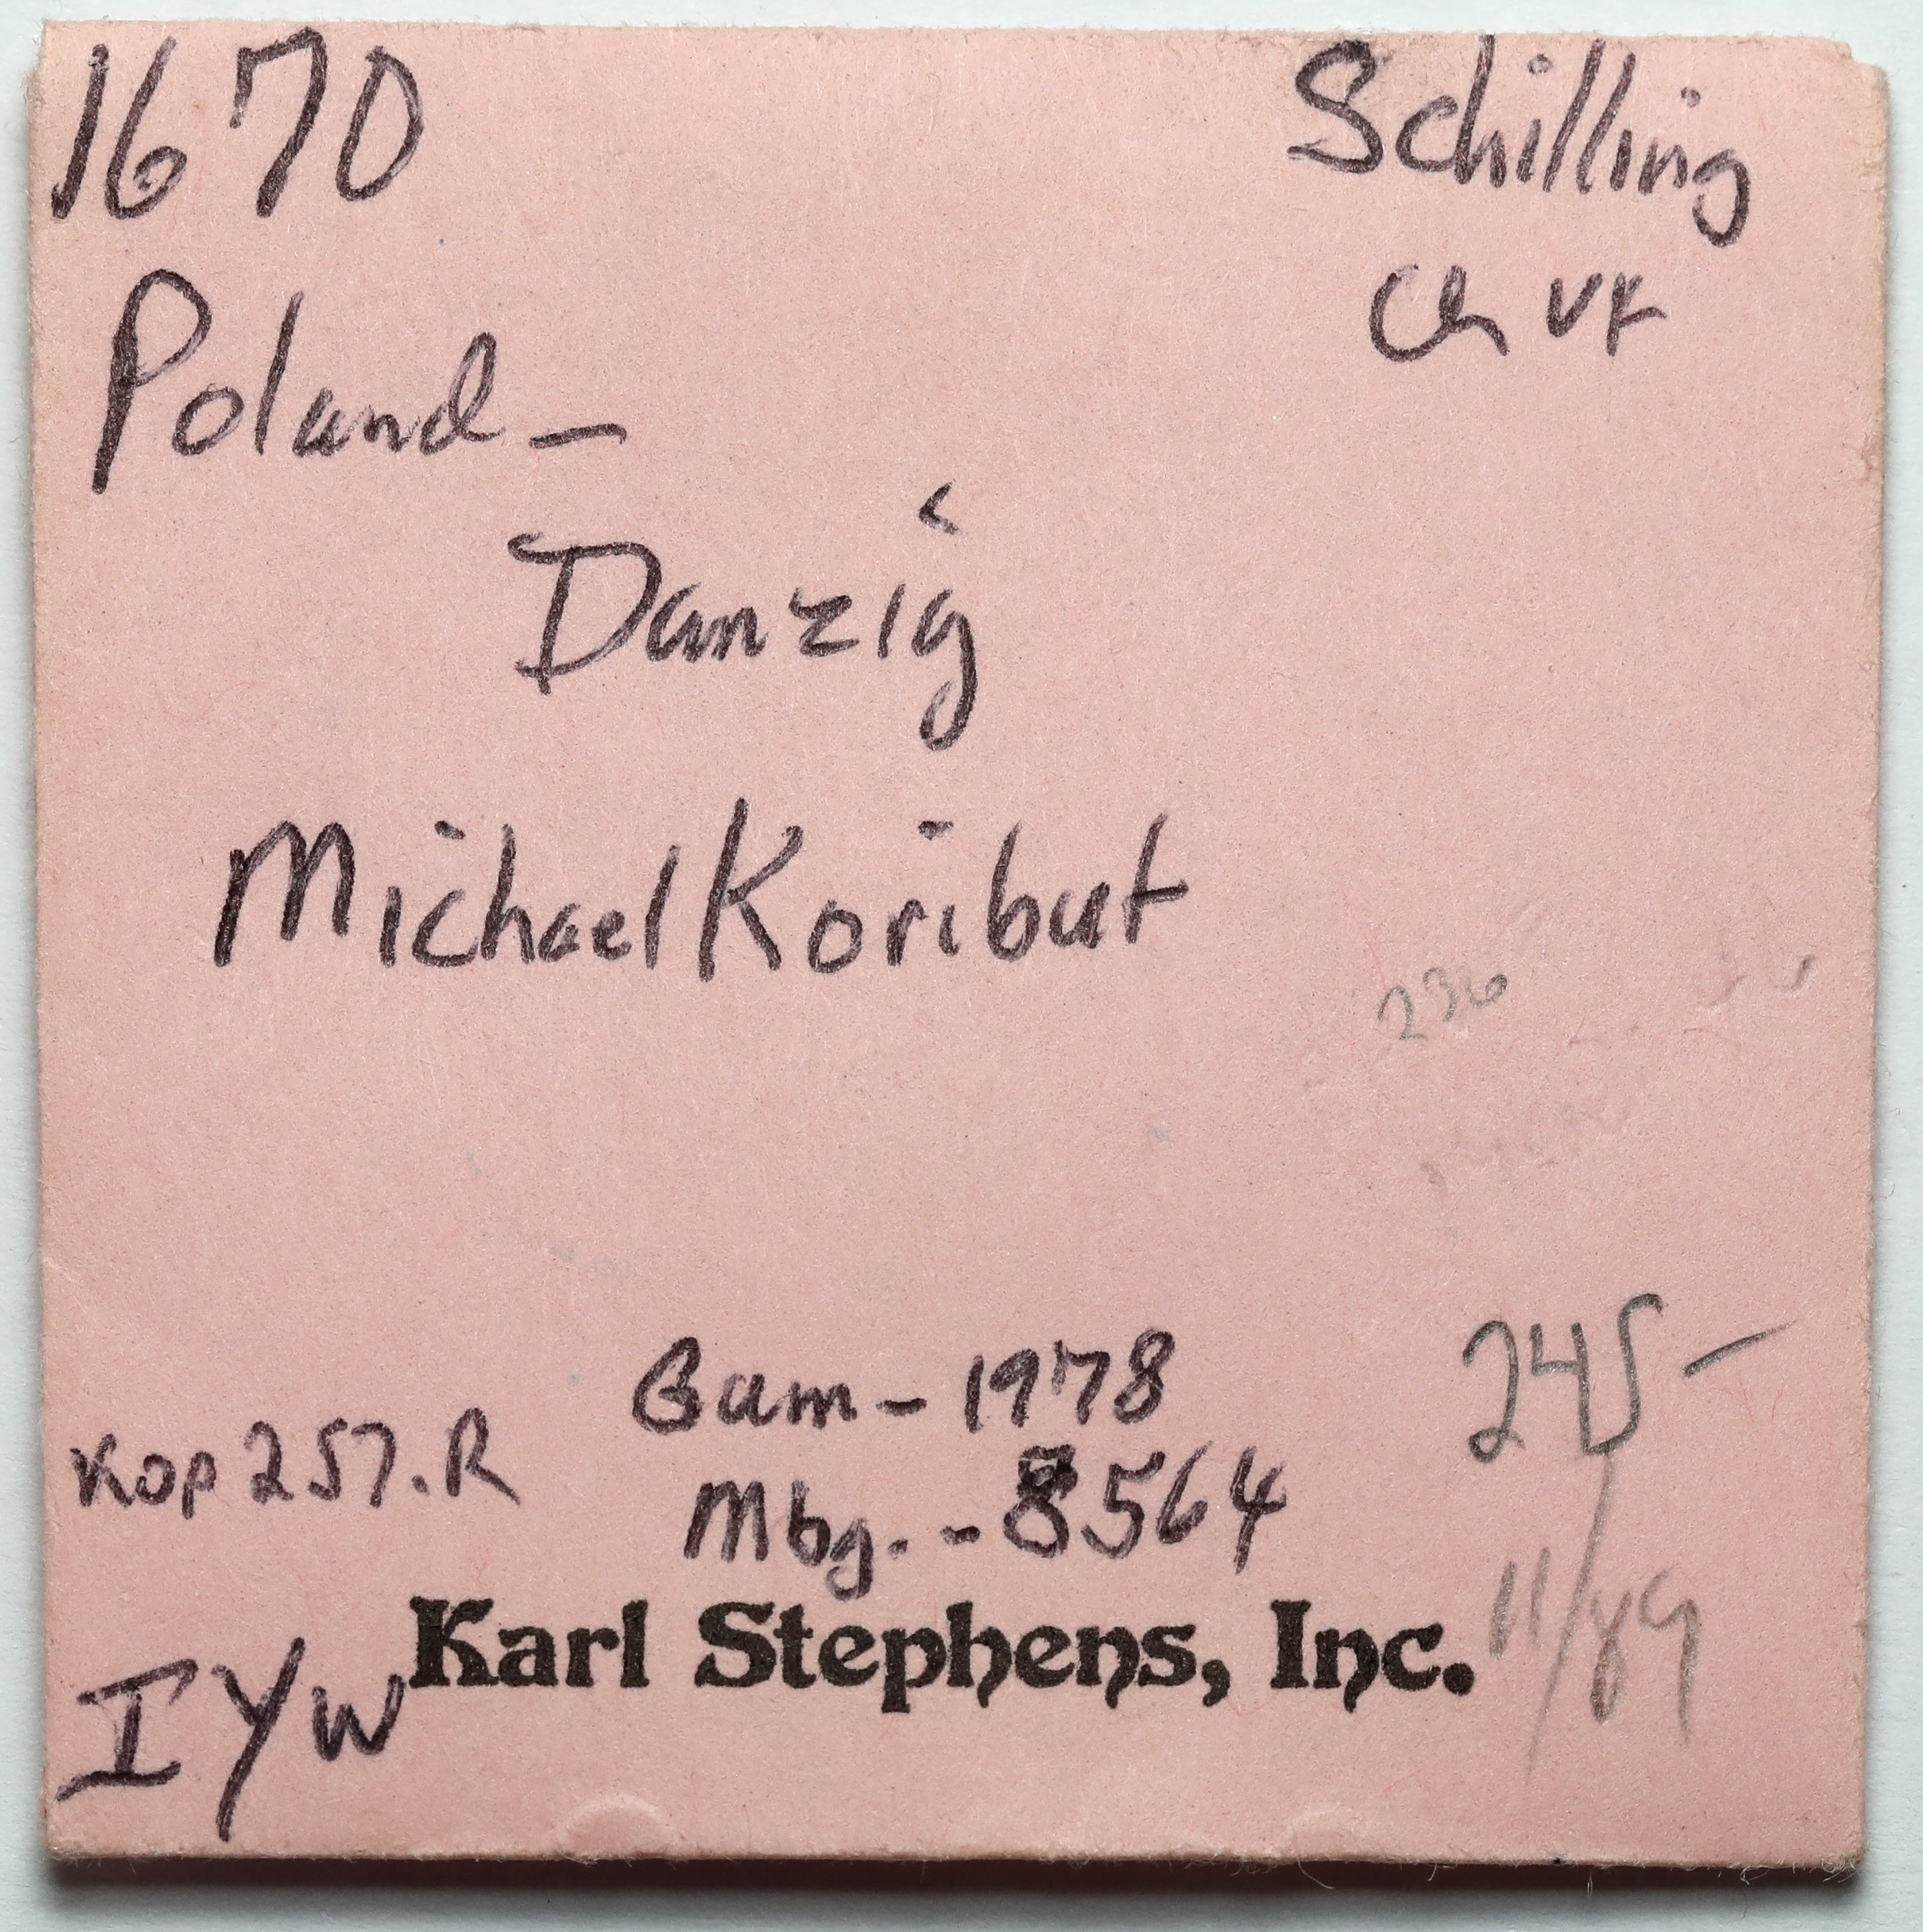 1670 Schilling
Ch VF
Poland -
Danzig
Michael Koribut
236
Gum - 1978
245 -
Kop 257.R
Mbg. - 8564
11/89
Karl Stephens, Inc.
IYW